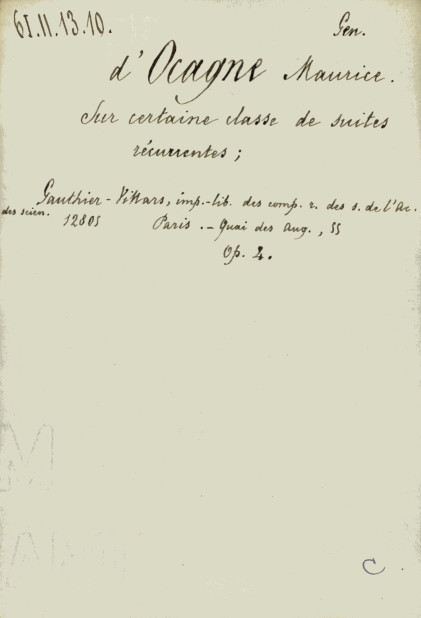 61.II.13.10. Gen.
d'Ocagne Maurice.
Sur certaine classe de suites
récurrentes ;
Gauthier-Villars, imp.-lib. des comp. r. des s. de l'Ac.
des scien. 12805 Paris.-Quai des Aug., 55
Op. 4.
C